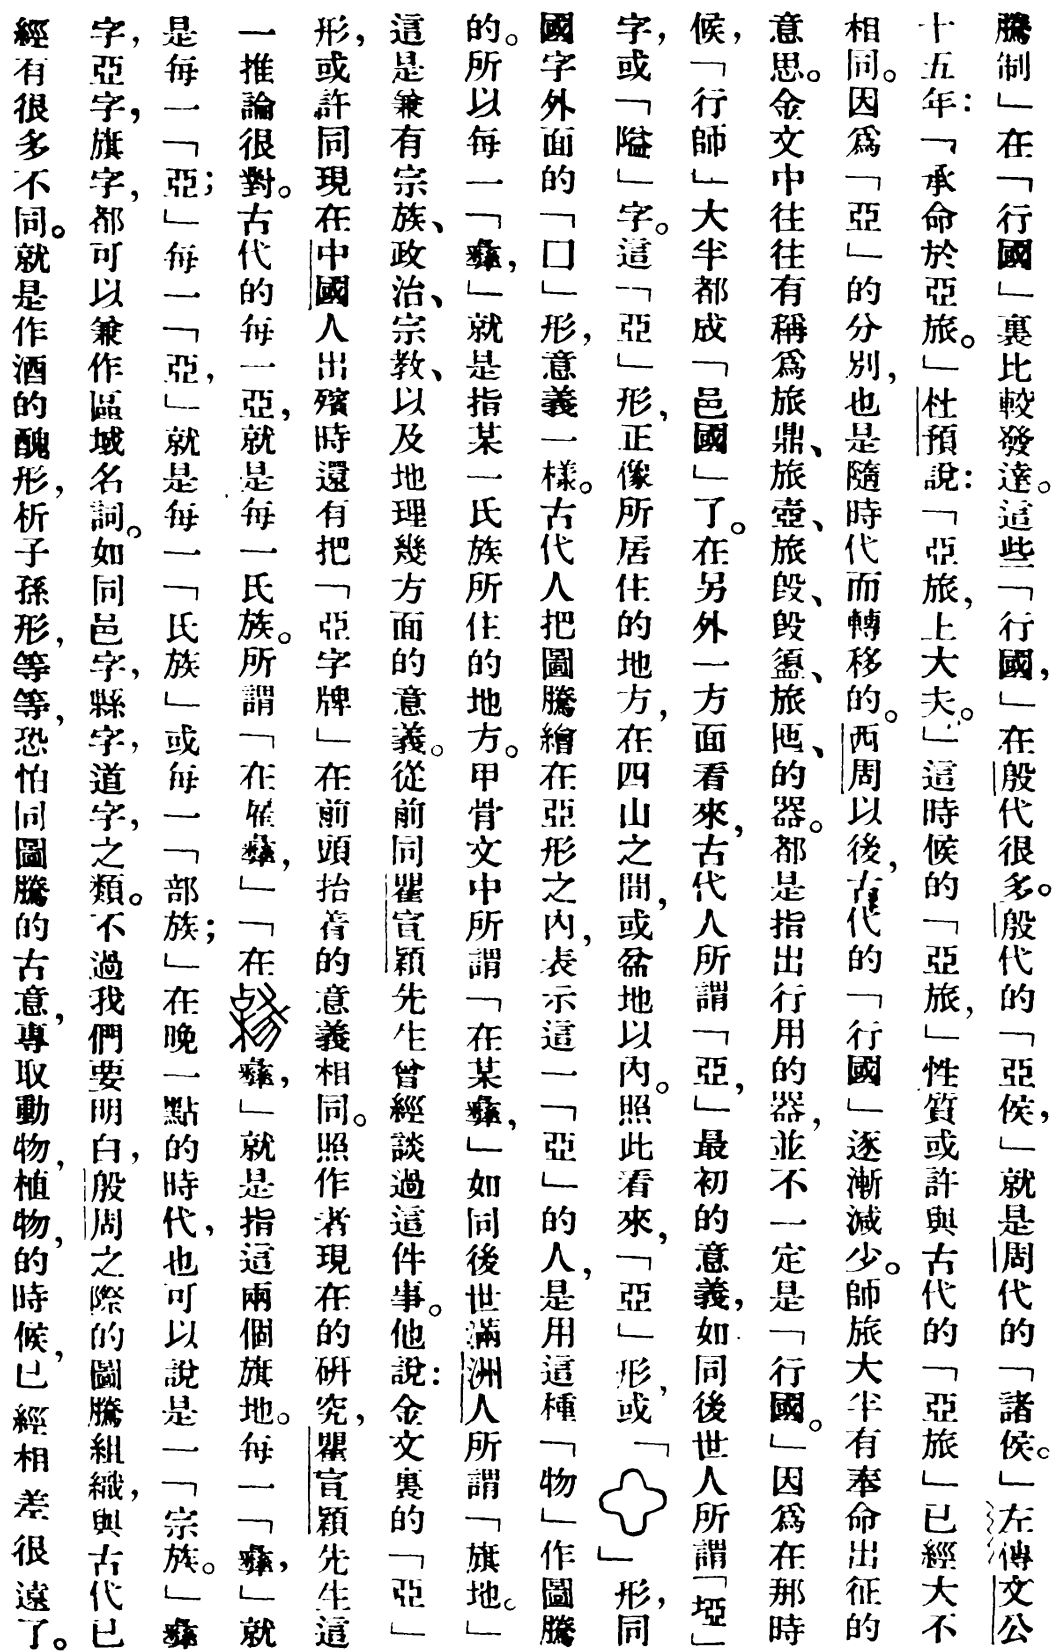 騰制」在「行國」裏比較發達。這些「行國，」在殷代很多。殷代的「亞侯，」就是周代的「諸侯。」左傳文公
十五年：「承命於亞旅。」杜預說：「亞旅，上大夫。」這時候的「亞旅，」性質或許與古代的「亞旅」已經大不
相同。因爲「亞」的分別，也是隨時代而轉移的。西周以後，古代的「行國」逐漸減少。師旅大半有奉命出征的
意思。金文中往往有稱爲旅鼎、旅壺、旅𣪘、𣪘盨、旅匜、的器。都是指出行用的器，並不一定是「行國。」因爲在那時
候，「行師」大半都成「邑國」了。在另外一方面看來，古代人所謂「亞，」最初的意義，如同後世人所謂「埡」
字，或「隘」字。這「亞」形，正像所居住的地方，在四山之間，或盆地以內。照此看來，「亞」形，或「」形，同
國字外面的「囗」形，意義一樣。古代人把圖騰繪在亞形之內，表示這一「亞」的人，是用這種「物」作圖騰
的。所以每一「彝，」就是指某一氏族所住的地方。甲骨文中所謂「在某彝，」如同後世滿洲人所謂「旗地。」
這是兼有宗族、政治、宗教、以及地理幾方面的意義。從前同瞿宣穎先生曾經談過這件事。他說：金文裏的「亞」
形，或許同現在中國人出殯時還有把「亞字牌」在前頭抬着的意義相同。照作者現在的研究，瞿宣穎先生這
一推論很對。古代的每一亞，就是每一氏族。所謂「在隹彝，」「在彝，」就是指這兩個旗地。每一「彝，」就
是每一「亞；」每一「亞，」就是每一「氏族」或每一「部族；」在晚一點的時代，也可以說是一「宗族。」彝
字，亞字，旗字，都可以兼作區域名詞。如同邑字，縣字，道字，之類。不過我們要明白，殷周之際的圖騰組織，與古代已
經有很多不同。就是作酒的醜形，析子孫形，等等，恐怕同圖騰的古意，專取動物，植物，的時候，已經相差很遠了。